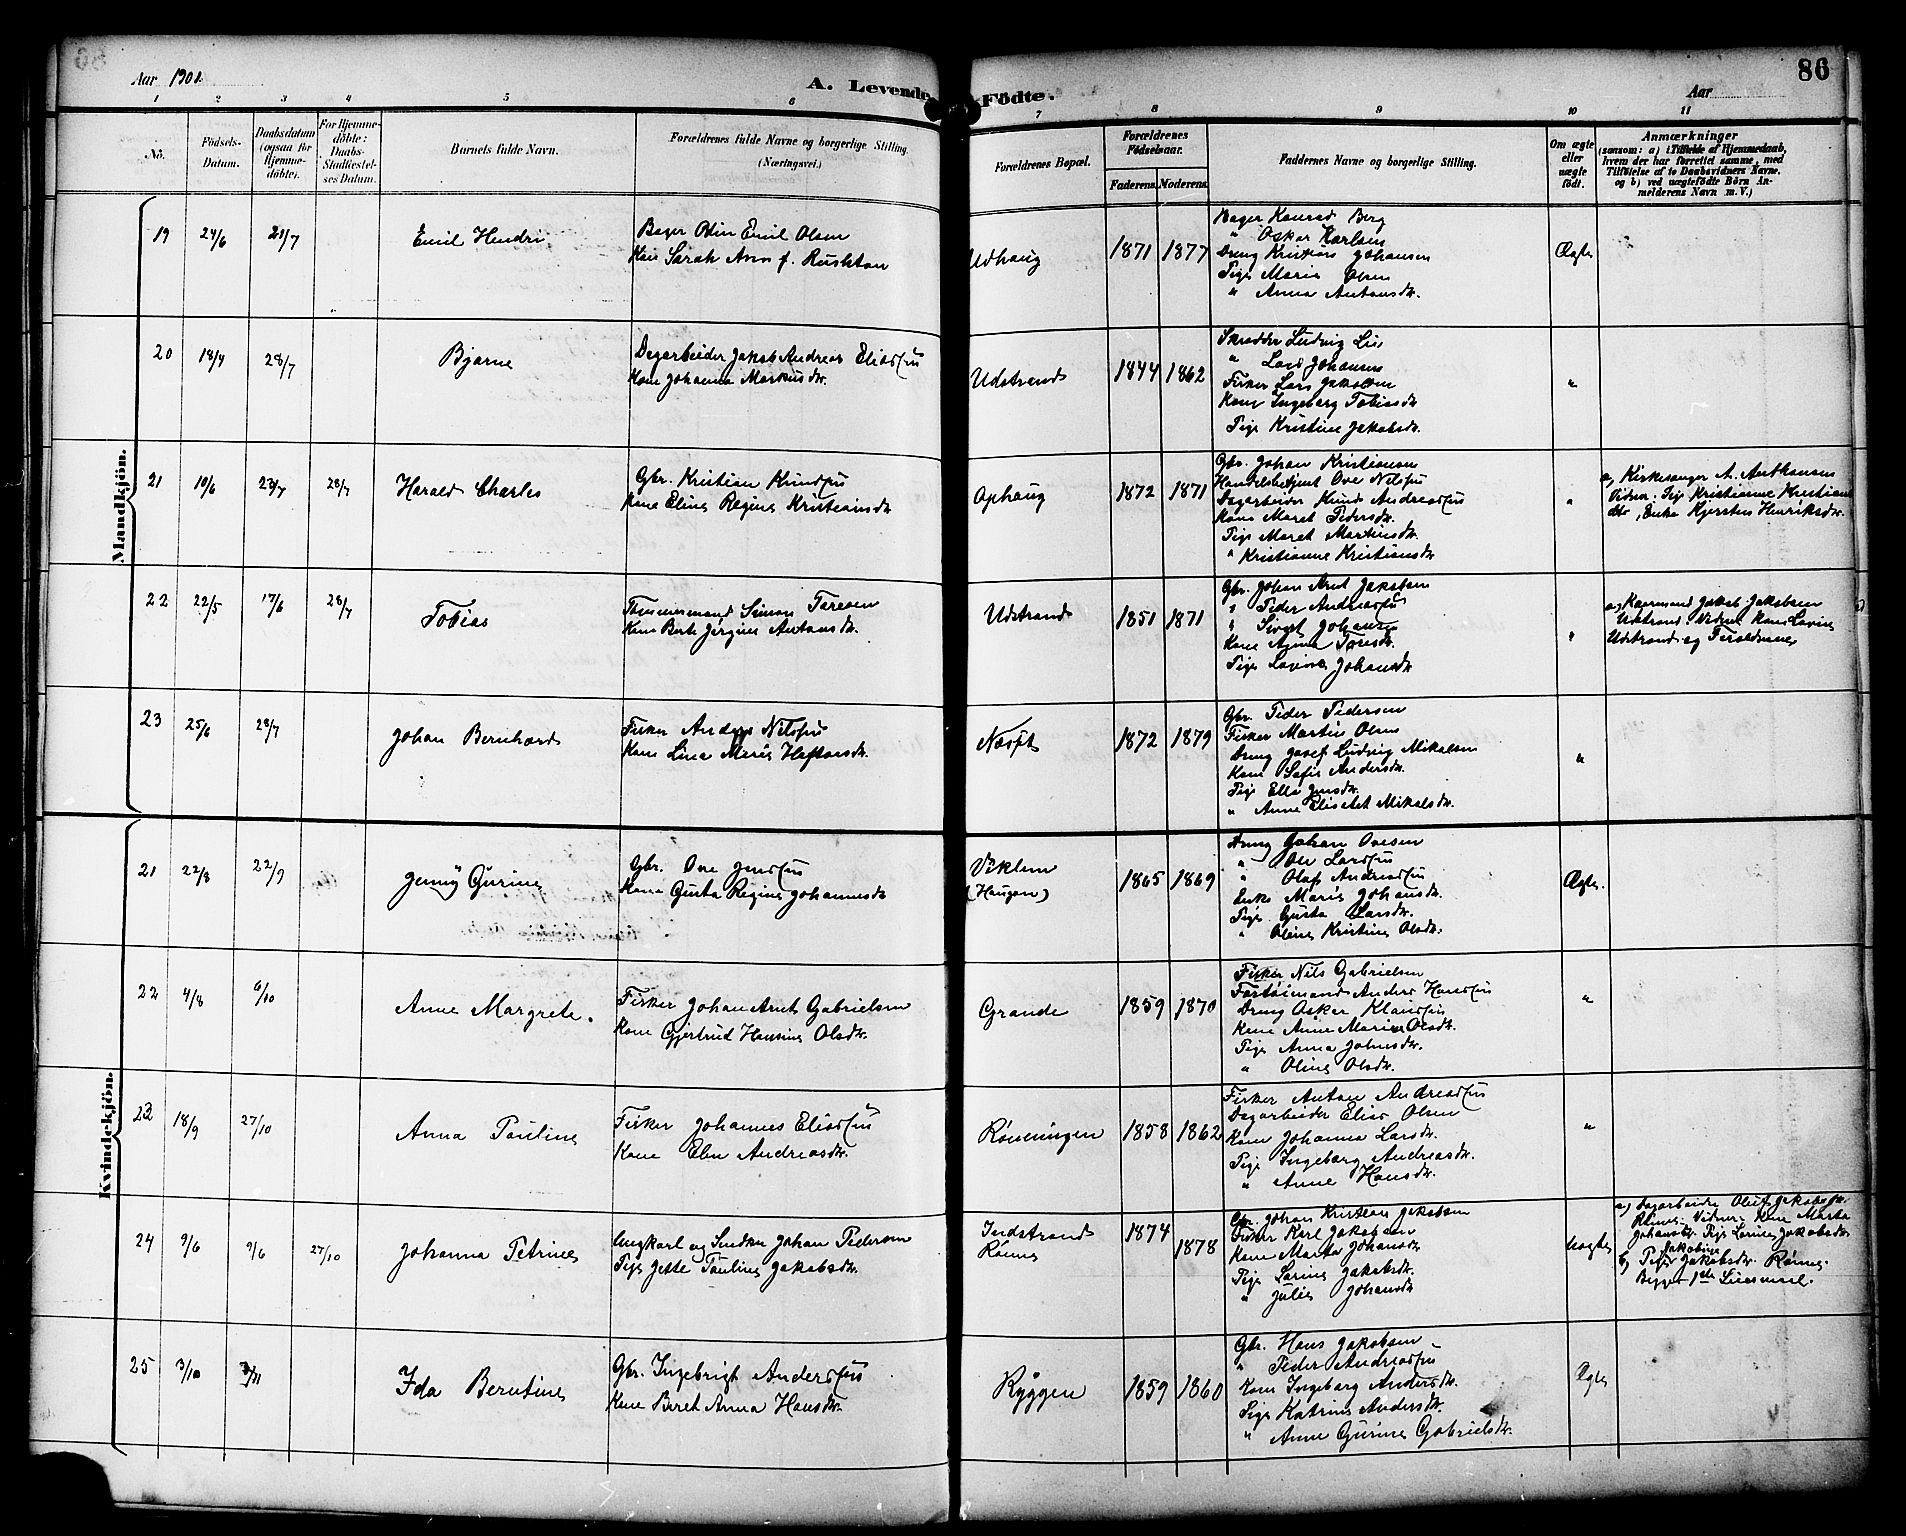 Aar 1901.
A. Levende Födte.
Aar
86
1 2 3 4 5 6 7 8 9 10 11
No.
Födsels-Datum.
Daabsdatum (ogsaa för Hjemmedöbte).
For Hjemmedöbte: Daabs-Stadfæstelses Datum.
Barnets fulde Navn.
Forældrenes fulde Navne og borgerlige Stilling. (Næringsvei.)
Forældrenes Bopæl.
Forældrenes Födselsaar.
Faderens. Moderens.
Faddernes Navne og borgerlige Stilling.
Om ægte eller uægte födt.
Anmærkninger
(saasom: a) i Tilfælde af Hjemmedaab, hvem der har forrettet samme, med Tilföielse af to Daabsvidners Navne, og b) ved uægtefödte Börn Anmelderens Navn m. V.)
Mandkjön.
19 24/6 21/7 Emil Hendri
Bager Odin Emil Olsen
Kone Sarah Ann f. Rushton
Udhaug 1871 1877
Bager Konrad Berg
" Oskar Karlsen
Dreng Kristian Johansen
Pige Marie Olsen
" Anna Antonsdtr.
Ægte
20 18/4 28/7 Bjarne
Dagarbeider Jakob Andreas Eliassen
Kone Johanna Markusdtr.
Udstrand 1844 1862
Skrædder Ludvig Lie
" Lars Johansen
Fisker Lars Jakobsen
Kone Ingeborg Tobiasdtr
Pige Kristine Jakobsdtr.
"
21 10/6 23/7 28/7 Harald Charles
Gbr. Kristian Knudsen
Kone Eline Regine Kristiansdtr
Ophaug 1872 1871
Gbr. Johan Kristiansen
Handelsbetjent Ove Nilssen
Dagarbeider Knud Andreassen
Kone Maret Pedersdtr.
Pige Maret Martinsdtr.
" Kristianne Kristiansdtr
"
a) Kirkesanger A.
Vidner: Pige Kristianne Kristians
dtr, Enke Kjersten Henriksdtr.
22 22/5 17/6 28/7 Tobias
Tømmermand Simon Taresen
Kone Berte Jørgine Antonsdtr.
Udstrand 1851 1871
Gbr. Johan Arnt Jakobsen
" Peder Andreassen
" Sivert Johansen
Kone Agnna Taresdtr.
Pige Lovise Johansdtr
"
a) Jakob Jakobsen
Udstrand Vidner Kone Lovise
Udstrand og Forældrene
23 25/6 28/7 Johan Bernhard
Fisker Anders Nilssen
Kone Lina Marie Haftorsdtr.
Næsøt 1872 1879
Gbr. Peder Pedersen
Fisker Martin Olsen
Dreng Josef Ludvig Mikalsen
Kone Sofie Andersdtr.
Pige Ella Jensdtr.
" Anne Elisabet Mikalsdtr.
"
Kvindekjön.
21 22/8 22/9 Jenny Gurine
Gbr. Ove Jenssen
Kone Gusta Regine Johannesdtr
Viklem (Haugen) 1865 1869
Dreng Johan Ovesen
" Ole Larssen
" Olaf Andreassen
Enke Marie Johansdtr.
Pige Gusta Larsdtr.
" Oline Kristine Olsdtr.
Ægte.
22 4/8 6/10 Anne Margrete.
Fisker Johan Arnt Gabrielsen
Kone Gjertrud Hansine Olsdtr.
Grande 1859 1870
Fisker Nils Gabrielsen
Anders Hanssen
Dreng Oskar Klaussen
Kone Anne Marie Olsdtr.
Pige Anna Johnsdtr.
" Oline Olsdtr.
"
23 18/9 27/10 Anna Pauline
Fisker Johannes Eliassen
Kone Elen Andreasdtr.
Rønningen 1858 1862
Fisker Anton Andreassen
Dagarbeider Elias Olsen
Kone Johanna Larsdtr.
Pige Ingeborg Andreasdtr.
" Anne Hansdtr.
"
24 9/6 9/6 27/10 Johanna Petrine
Ungkarl og Snedker Johan Pedersen
Pige Jette Pauline Jakobsdtr.
Indstrand Rønne 1874 1878
Gbr. Johan Kristian Jakobsen
Fisker Karl Jakobsen
Kone Marta Johansdtr
Pige Lorine Jakobsdtr.
" Julie Johansdtr
Uægte
a) Dagarbeider Oluf Jakobsen
Rønne. Vidner: Kone Marta
Johansdtr. Pige Lorine Jakobsdtr
b) Pige Jakobine Jakobsdtr. Rønne.
Begges 1ste Leiermaal.
25 3/10 3/11 Ida Berntine
Gbr. Ingebrigt Anderssen
Kone Beret Anna Hansdtr.
Ryggen 1859 1860
Gbr. Hans Jakobsen
" Peder Andreassen
Kone Ingeborg Andersdtr.
Pige Katrine Andersdtr.
" Anne Gurine Gabrielsdtr.
Ægte